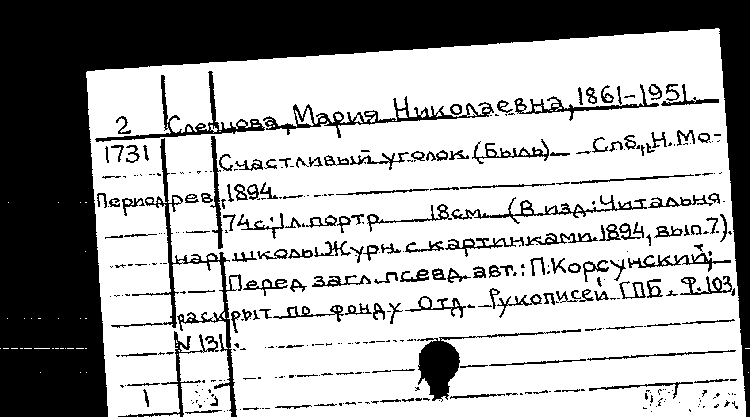 2 Слепцова, Мария Николаевна, 1861-1951.
1731
Счастливый уголок. (Быль). Спб., Н. Мо-
Период.рев., 1894.
74с.; 1л. портр. 18см. (В изд.: Читальня
нар. школы. Журн. с картинками. 1894, вып. 7).
Перед загл. псевд. авт.: П. Корсунский;
раскрыт по фонду Отд. Рукописей ГПБ. Ф. 103,
N 131.
1